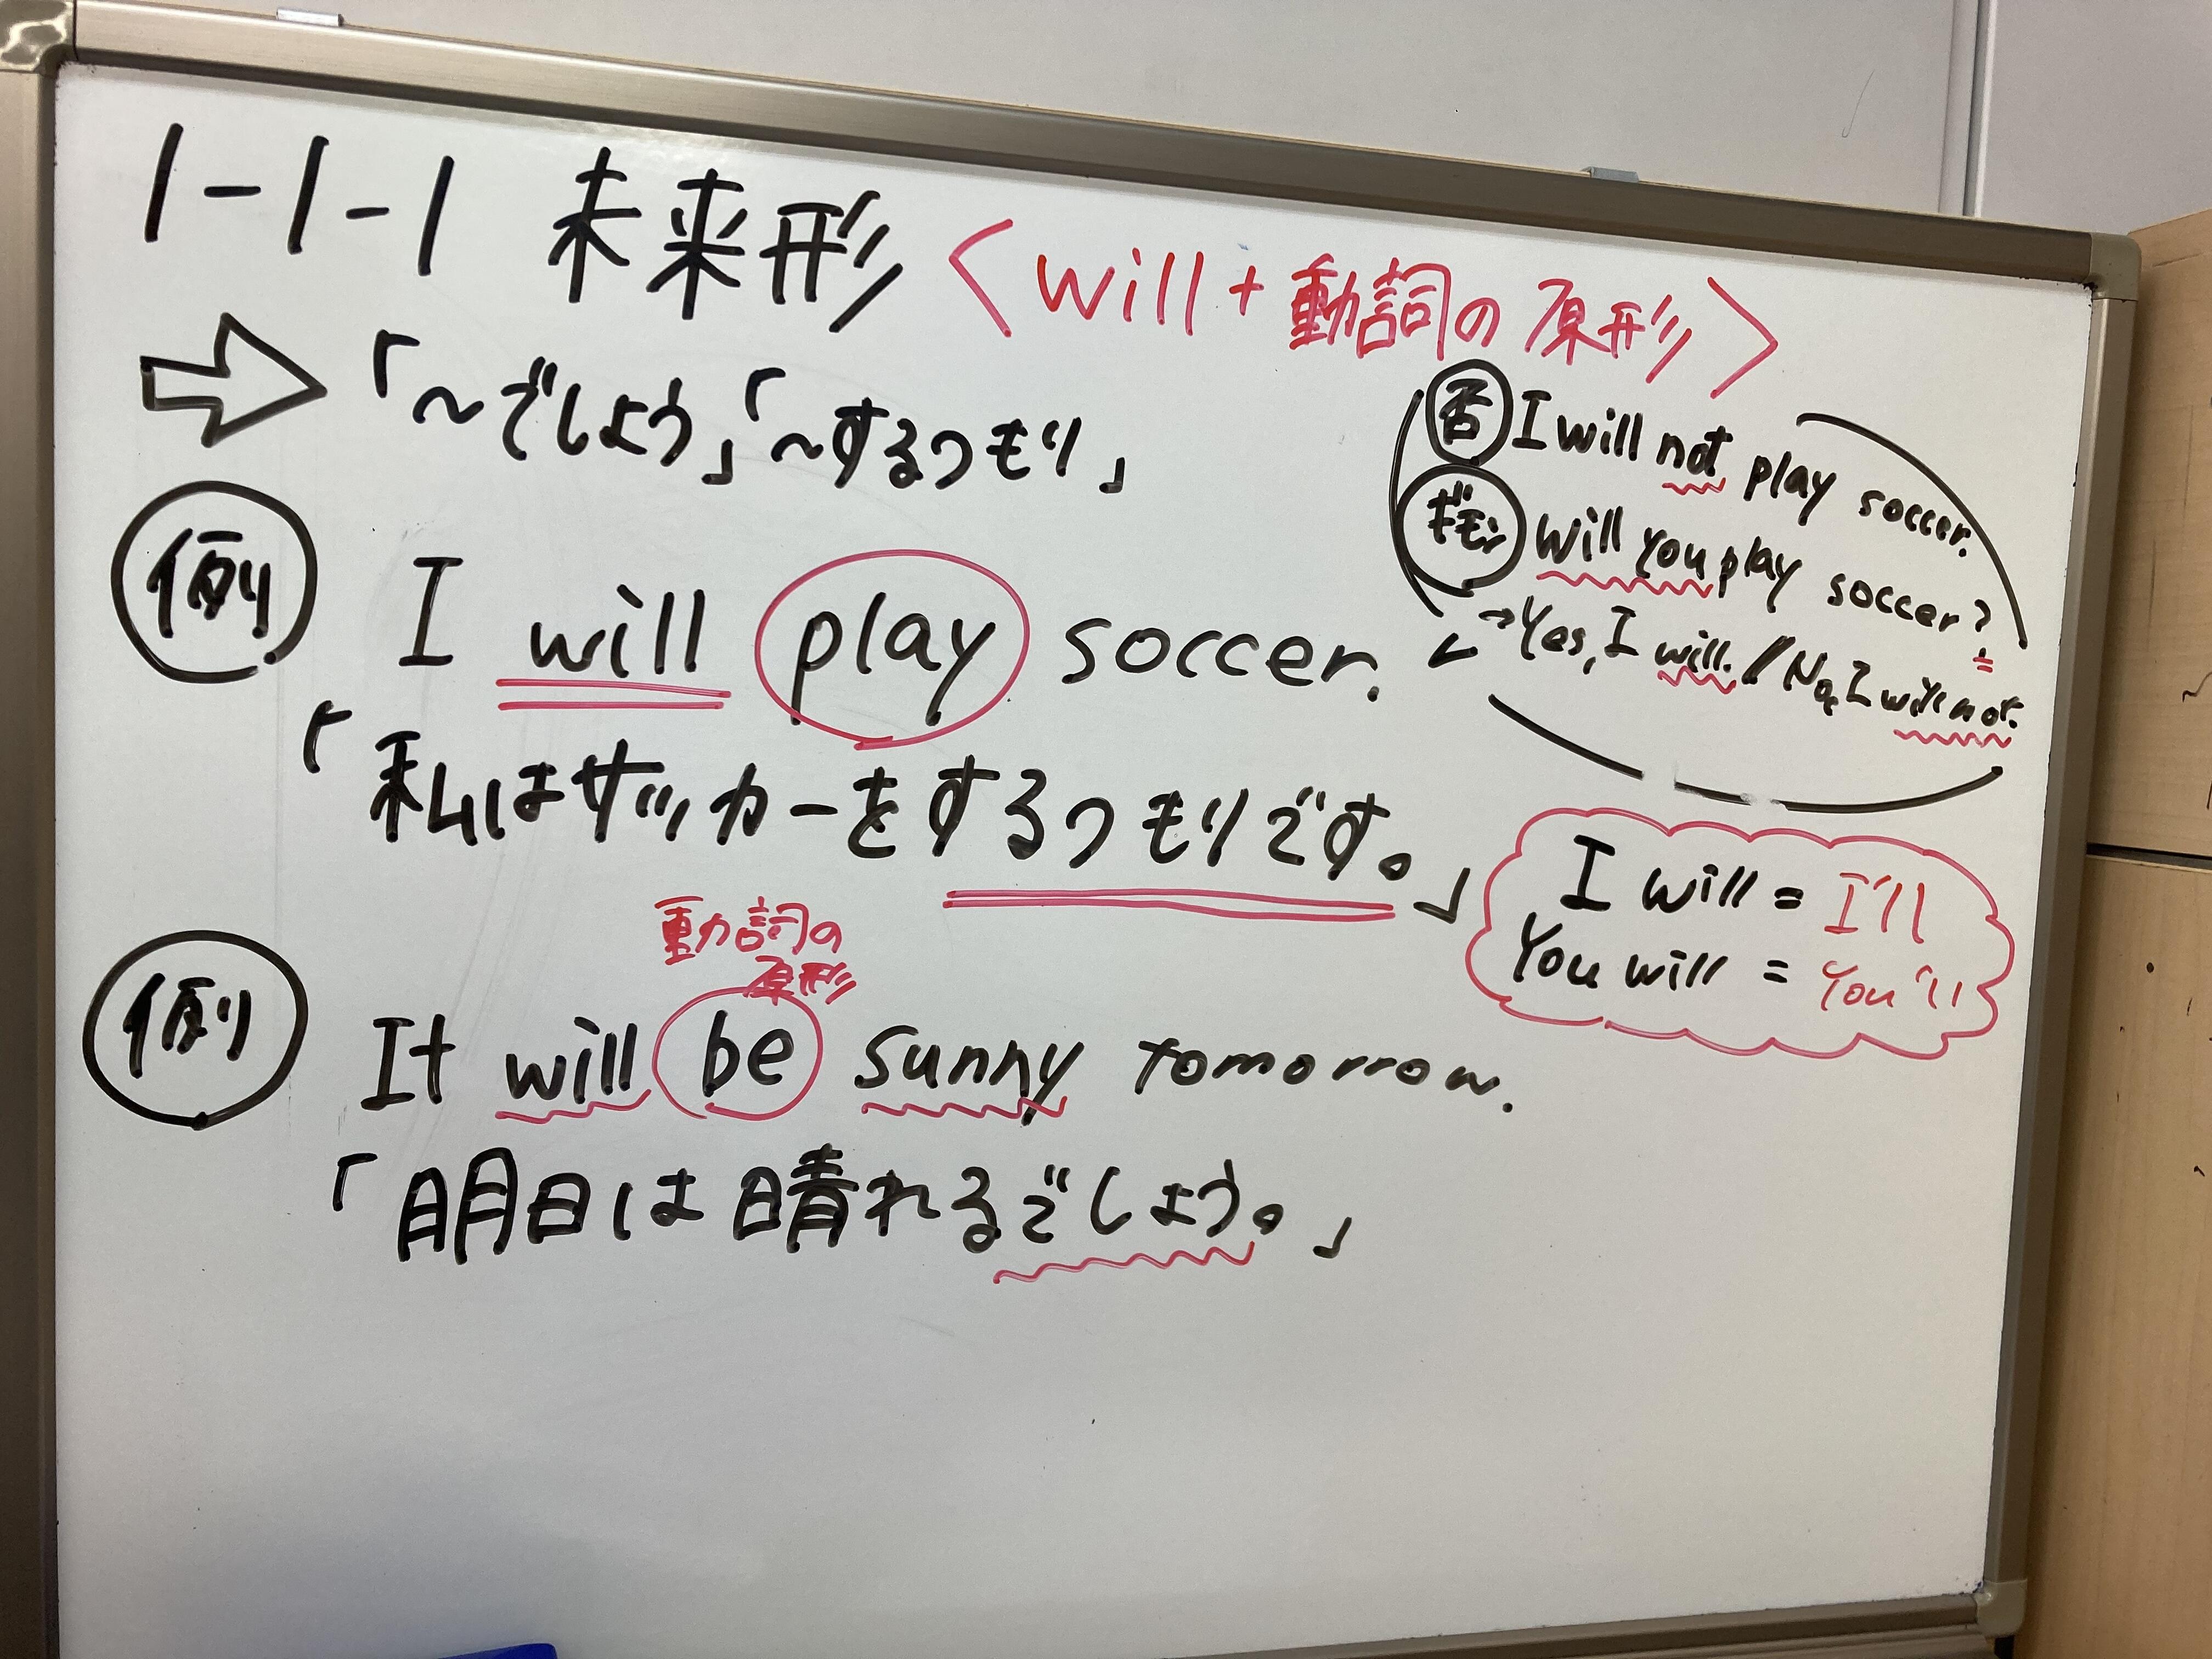 1-1-1 未来形 〈will+動詞の原形〉
⇨ 「〜でしょう」「〜するつもり」
否 I will not play soccer.
ギモン Will you play soccer?
→Yes, I will. // No, I will not.
例 I will play soccer.
「私はサッカーをするつもりです。」
I will = I'll
You will = You'll
動詞の
原形
例 It will be sunny tomorrow.
「明日は晴れるでしょう。」